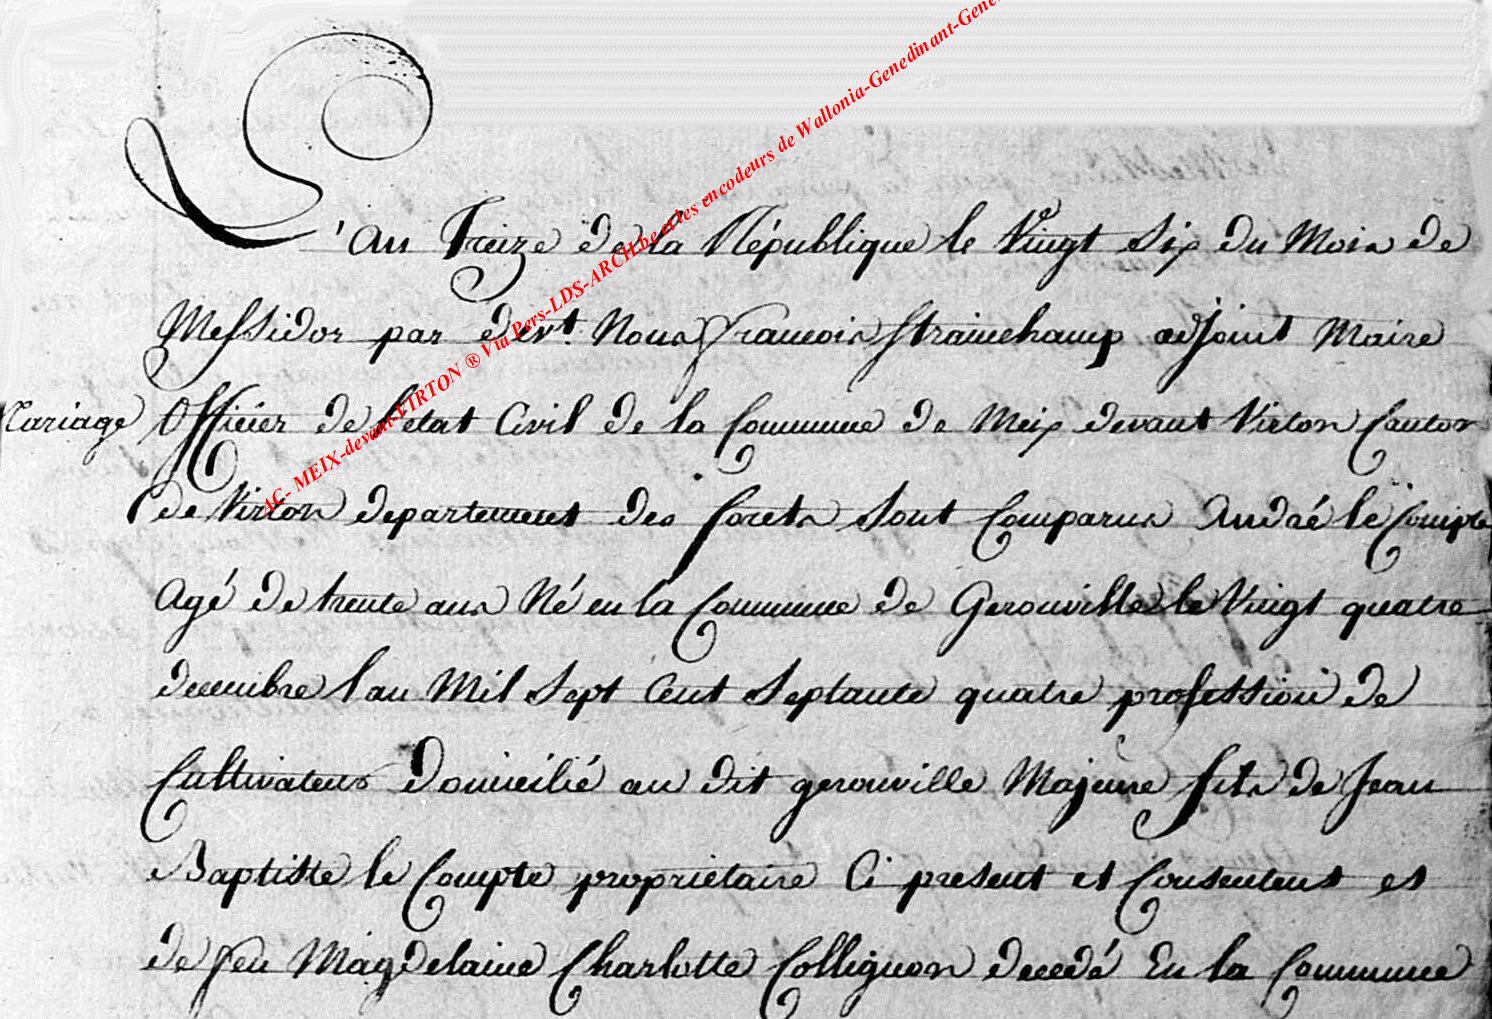 L'an Treize de la République le Vingt Six du Mois de
Messidor par devt. Nous francois strainchamp adjoint Maire
Mariage
Officier de l'etat Civil de la Commune de Meix devant Virton Canton
de Virton departement des forets sont Comparus André le Compte
Agé de trente ans Né en la Commune de Gerouville le Vingt quatre
decembre l an Mil Sept Cent Septante quatre profession de
Cultivateur Domicilié au dit gerouville Majeure fils de Jean
Baptiste le Compte propriétaire Ci present et Consentent et
de feu Magdelaine Charlotte Collignon decedé En la Commune
AC- MEIX-devant-VIRTON ® Via Pers-LDS-ARCH.be et les encodeurs de Wallonia-Genedinant-Gene